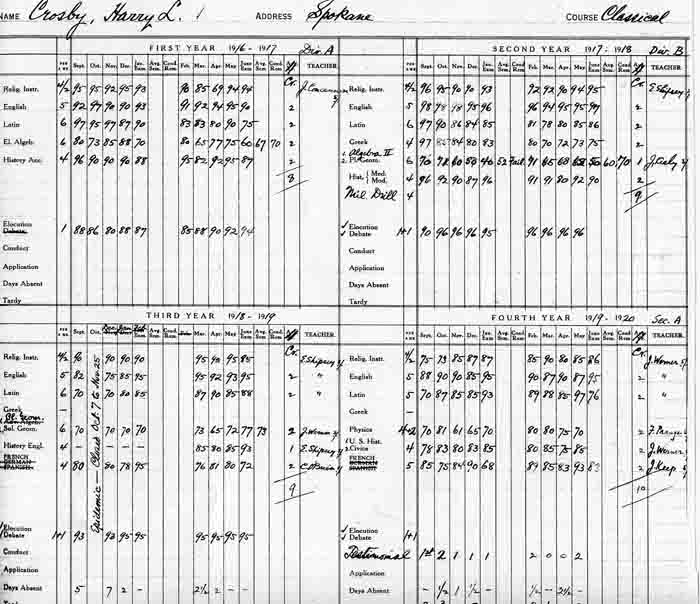 NAME Crosby, Harry L. ADDRESS Spokane COURSE Classical
FIRST YEAR 1916-1917 Div. A
PER WK Sept. Oct. Nov. Dec. Jan. Exam Av'g. Sem. Cond. Rem. Feb. Mar. Apr. May Jun. Exam Av'g. Sem. Cond. Rem. Cr. TEACHER
Relig. Instr. 4/2 95 95 92 95 93 90 85 69 94 94
English 5 92 97 90 90 93 91 92 94 95 90 2
Latin 6 97 95 97 87 90 83 83 80 90 75 2
El. Algeb. 6 80 73 85 88 70 80 65 77 75 60 67 70 2
History Anc. 4 96 90 90 90 88 95 82 92 95 87 2
8
Elocution
Debate 1 88 56 80 88 87 85 88 90 92 94
Conduct
Application
Days Absent
Tardy
SECOND YEAR 1917-1918 Div. B
PER WK Sept. Oct. Nov. Dec. Jan. Exam Av'g. Sem. Cond. Rem. Feb. Mar. Apr. May Jun. Exam Av'g. Sem. Cond. Rem. Cr. TEACHER
Relig. Instr. 4/2 96 95 90 90 93 92 92 90 94 95 E Shipsey Sj
English 5 98 78 98 95 96 96 94 95 95 97 2
Latin 6 97 90 86 84 85 81 78 80 85 86 2
Greek 4 97 85 84 80 83 80 70 72 73 75 2
1. Algebra II
2. Pl. Geom. 6 70 52 60 70 1
Hist. { Med. Mod. 4 96 92 90 87 96 91 91 80 92 90 2
Mil. Drill 4 9
Elocution
Debate 1+1 90 96 96 96 95 96 96 96 96
Conduct
Application
Days Absent
Tardy
THIRD YEAR 1918-1919
Relig. Instr. 4/2 96 90 90 90 95 90 95 85 E Shipsey Sj
English 5 82 75 85 95 95 92 93 95 2 "
Latin 6 70 70 80 85 87 90 85 88 2 "
Greek —
Pl. Geom.
Sol. Geom. 6 70 70 70 70 73 65 72 77 73 2 J Werner Sj
History Engl. 4 — — — — 85 80 85 93 1 E Shipsey Sj
FRENCH
GERMAN
SPANISH 4 80 80 78 95 76 81 80 72 2
9
Epidemic — Closed Oct 7 to Nov 25
Elocution
Debate 1+1 93 93 95 95 95 95 95 95
Conduct
Application
Days Absent 5 7 2 - 2½ 2 - -
FOURTH YEAR 1919-1920 Sec. A
Relig. Instr. 4/2 75 73 85 87 87 85 90 80 85 86 J. Werner Sj
English 5 88 90 90 85 95 90 87 90 87 95 2 "
Latin 5 70 87 85 85 93 89 88 85 97 76 2 "
Greek —
Physics 4+2 70 81 61 65 70 80 80 75 70 2
1 U. S. Hist.
2 Civics 4 78 83 80 83 85 80 85 75 85 2 J. Werner Sj
FRENCH
GERMAN
SPANISH 5 85 75 84 90 68 89 85 83 93 2 J Keep Sj
10
Elocution
Debate 1+1
Conduct
Testimonial 1st 2 1 1 1 2 0 0 2
Application
Days Absent - ½ 1 ½ - ½ - 2½ -